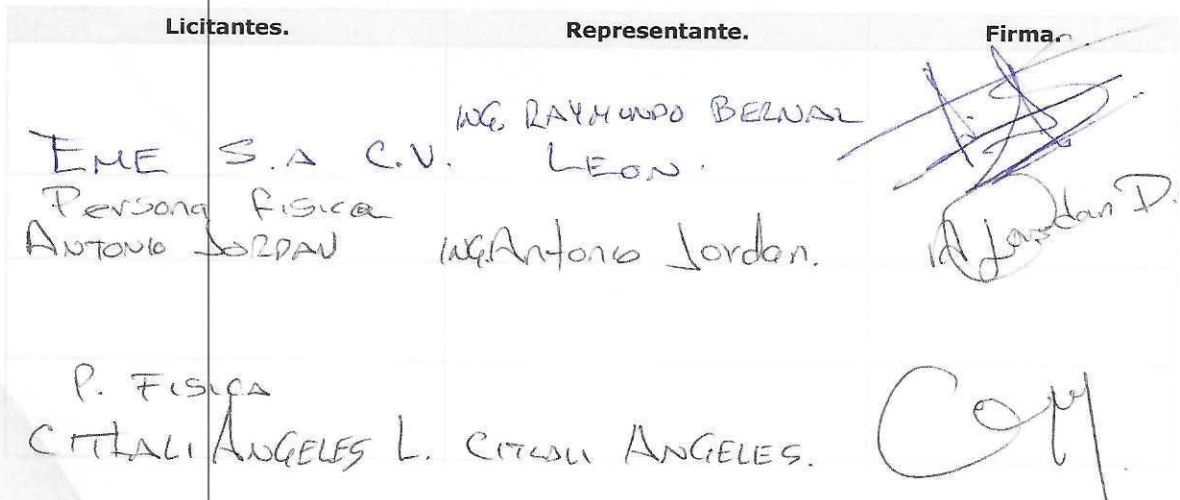 Licitantes. Representante. Firma.
ING. RAYMUNDO BERNAL
EME S.A C.V. LEON.
Persona fisica
ANTONIO JORDAN ING. Antonio Jordan. A Jordan D.
P. FISICA
CITLALI ANGELES L. CITLALI ANGELES.